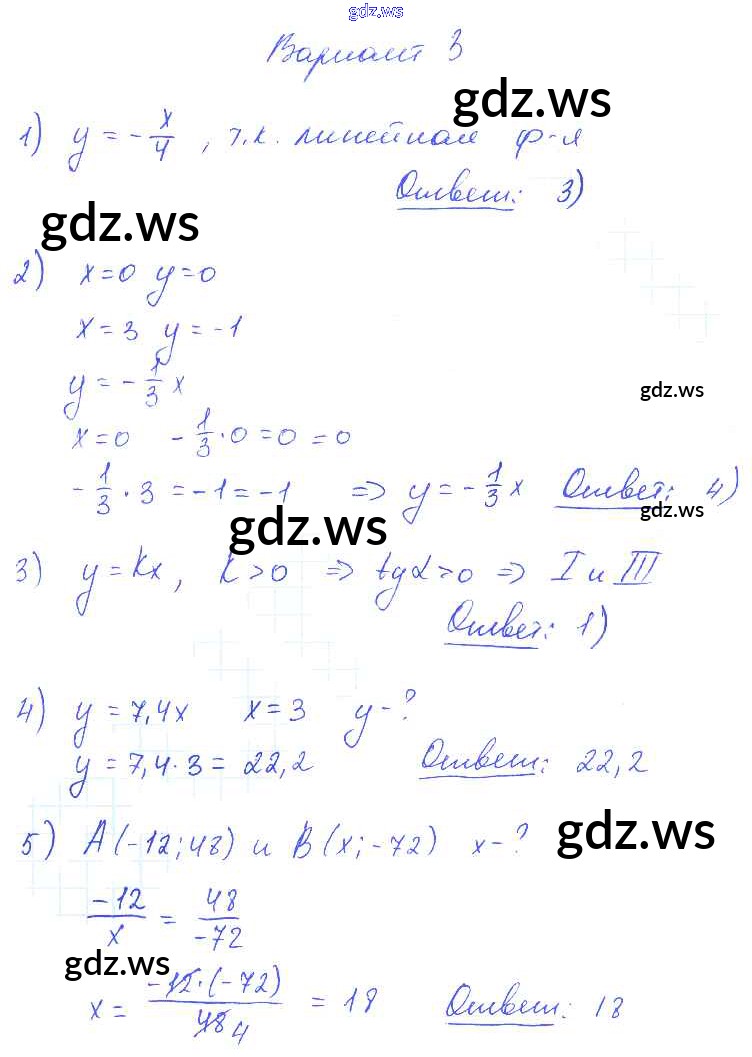 gdz.ws
Вариант 3
gdz.ws
1) y = -x/4, т.к. линейная ф-я
Ответ: 3)
gdz.ws
2) x=0 y=0
x=3 y=-1
y = -1/3 x
gdz.ws
x=0 -1/3 · 0 = 0 = 0
-1/3 · 3 = -1 = -1 => y = -1/3 x Ответ: 4)
gdz.ws
gdz.ws
3) y=kx, k>0 => tgα>0 => I и III
Ответ: 1)
4) y = 7,4x x=3 y-?
y = 7,4·3 = 22,2 Ответ: 22,2
gdz.ws
5) A(-12;48) и B(x;-72) x-?
-12/x = 48/-72
gdz.ws
x = -12·(-72)/48 4 = 18 Ответ: 18